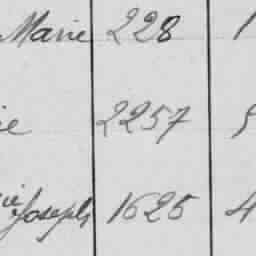 Marie 228 1
ie 2257 5
ie Joseph 1625 4